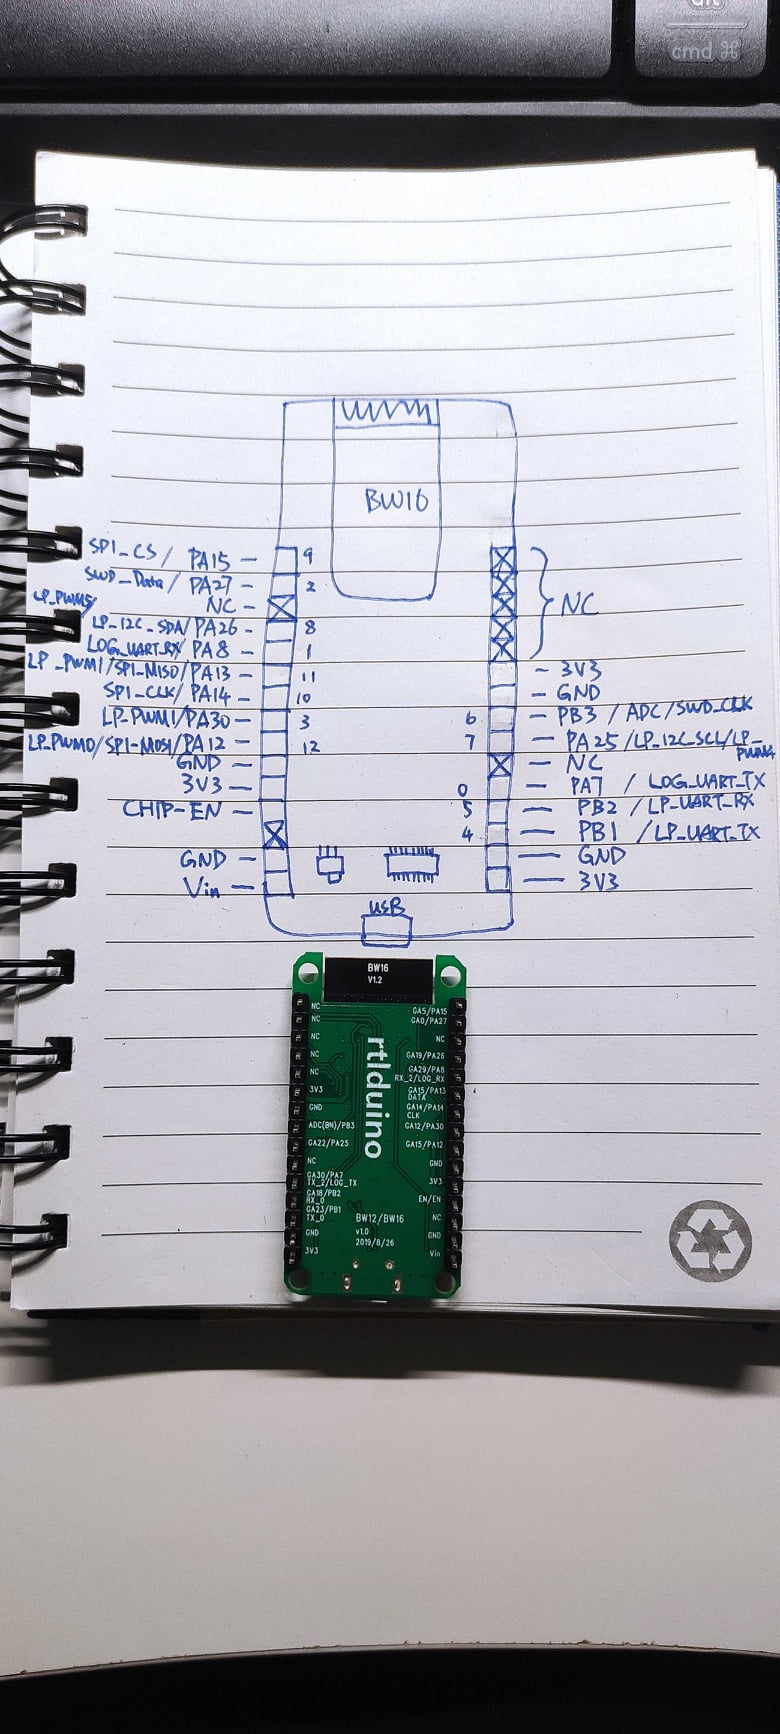 alt
cmd ⌘
BW16
SPI_CS / PA15 — 9
SWD_Data / PA27 — 2
NC —
LP_PWM5/
LP_I2C_SDA/PA26 - 8
LOG_UART_RX/ PA8 - 1
LP_PWM1/SPI_MISO/PA13 — 11
SPI_CLK/ PA14 - 10
LP-PWM1/PA30 — 3
LP_PWM0/SPI-MOSI/PA12 — 12
GND —
3V3 —
CHIP-EN —
GND —
Vin —
NC
- 3V3
- GND
6 - PB3 / ADC/SWD_CLK
7 - PA25 /LP_I2C_SCL/LP_PWM4
- NC
0 PA7 / LOG_UART_TX
5 — PB2 / LP_UART_RX
4 — PB1 / LP_UART_TX
— GND
— 3V3
USB
BW16
V1.2
NC
NC
NC
NC
NC
3V3
GND
ADC(BN)/PB3
GA22/PA25
NC
GA30/PA7
TX_2/LOG_TX
GA18/PB2
RX_0
GA23/PB1
TX_0
GND
3V3
rtlduino
GA5/PA15
GA0/PA27
NC
GA19/PA26
GA29/PA8
RX_2/LOG_RX
GA15/PA13
DATA
GA14/PA14
CLK
GA12/PA30
GA15/PA12
GND
3V3
EN/EN
NC
GND
Vin
BW12/BW16
v1.0
2019/8/26